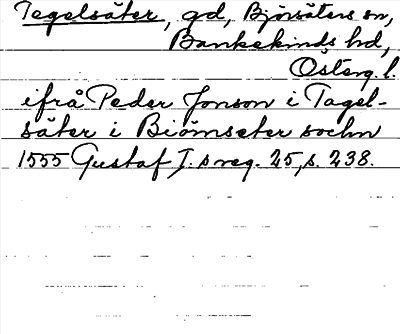 Tegelsäter, gd, Björsäters sn,
Bankekinds hd,
Österg. l.
ifrå Peder Jonson i Tagel-
säter i Biörnseter sochn
1555 Gustaf I.s reg. 25, s. 238.